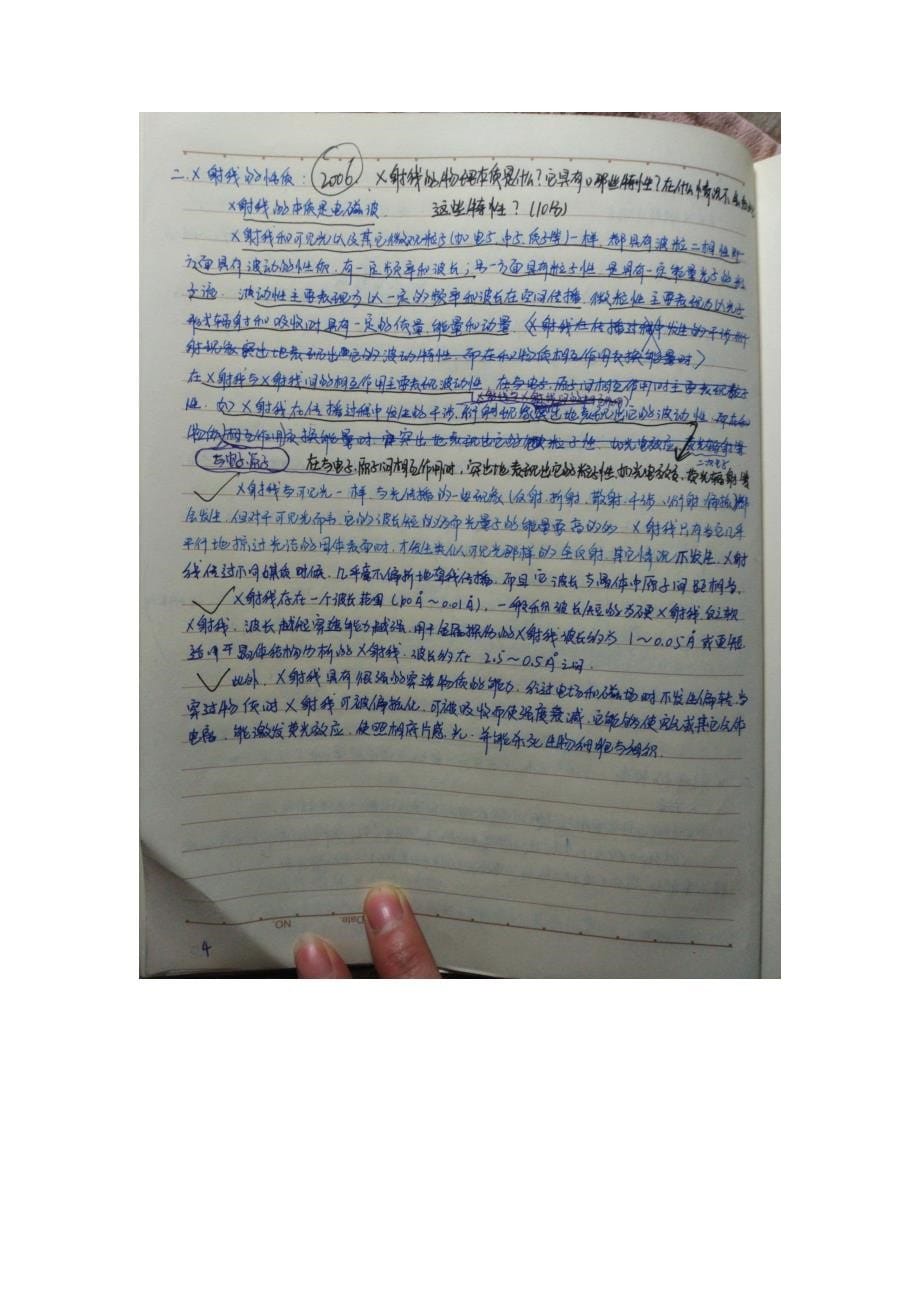 二、X射线的性质： 2006. X射线的物理本质是什么？它具有哪些特性？在什么情况下
X射线的本质是电磁波. 这些特性？(10分)
X射线和可见光以及其它微观粒子(如电子,中子,质子等)一样,都具有波粒二相性,即
方面具有波动的性质,有一定频率和波长；另一方面具有粒子性,是具有一定能量光子的粒
子流. 波动性主要表现为以一定的频率和波长在空间传播,微粒性主要表现为以光子
形式辐射和吸收时具有一定的质量,能量和动量. (X射线在传播过程中发生的干涉衍
射现象突出地表现出它的波动特性,而在和物质相互作用交换能量时)
在X射线与X射线间的相互作用主要表现波动性,在与电子,原子间相互作用时主要表现粒子
(X射线与X射线间的相互作用)
性. 如X射线在传播过程中发生的干涉,衍射现象突出地表现出它的波动性,而在和
物质相互作用交换能量时,突出地表现出它的微粒子性,如光电效应,荧光辐射等
二次电子
与电子.原子 在与电子.原子间相互作用时,突出地表现出它的粒子性,如光电效应,荧光辐射等
X射线与可见光一样,与光传播的一些现象(反射.折射.散射.干涉.衍射.偏振)都
会发生,但对于可见光而言,它的波长短的多而光量子的能量要高的多. X射线只有当它几乎
平行地掠过光洁的固体表面时,才发生类似可见光那样的全反射,其它情况不发生. X射
线传过不同媒质时候,几乎毫不偏折地直线传播. 而且它波长与晶体中原子间距相当.
X射线存在一个波长范围(100Å~0.01Å), 一般称波长短的为硬X射线,反之软
X射线. 波长越短穿透能力越强,用于金属探伤的X射线波长约为1~0.05Å或更短
适用于晶体结构分析的X射线,波长约在2.5~0.5Å之间.
此外,X射线具有很强的穿透物质的能力,经过电场和磁场时不发生偏转,当
穿过物质时X射线可被偏振化,可被吸收而使强度衰减,它能够使空气或其它气体
电离,能激发荧光效应,使照相底片感光,并能杀死生物细胞与组织.
NO. Date.
4